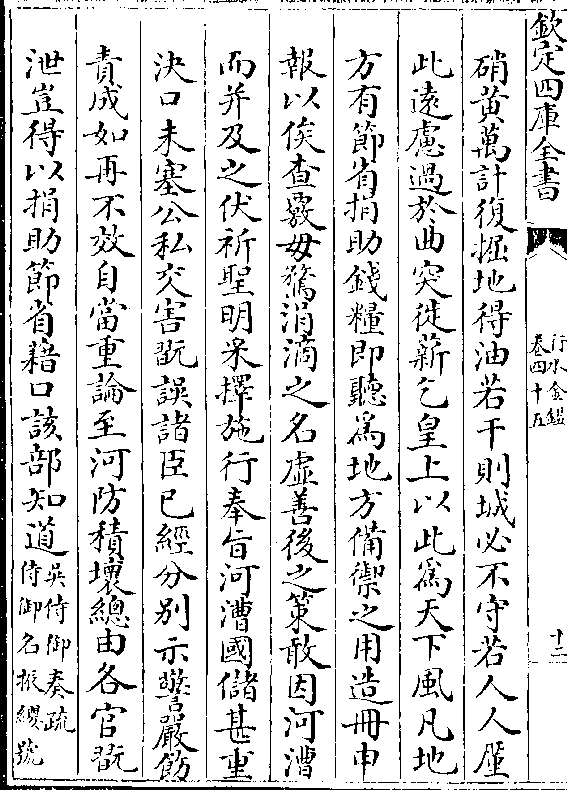 欽定四庫全書
行水金鑑
卷四十五
十二
硝黄萬計復掘地得油若干則城必不守若人人厪
此遠慮過於曲突徙薪乞皇上以此為天下風凡地
方有節省捐助錢糧即聽為地方備禦之用造冊申
報以俟查覈毋騖涓滴之名虛善後之策敢因河漕
而并及之伏祈聖明采擇施行奉旨河漕國儲甚重
決口未塞公私交害既誤諸臣已經分别示警嚴飭
責成如再不效自當重論至河防積壞總由各官既
泄豈得以捐助節省藉口該部知道吳侍御奏疏
侍御名振纓號